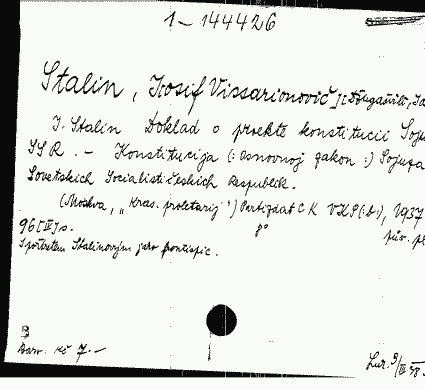 1-144426
Stalin, Iosif Vissarionovič
J. Stalin Doklad o proektě konstitucii
SSR. - Konstitucija (: osnovnoj zakon :) Sojuza
Sovetskich Socialističeskich Respublik.
(Moskva, „Kras. proletarij") Partizdat C K VKP(:b:), 1937
96 [IV] s. 8° pův.
S portretem Stalinovým jako frontispic.
B
Darov. Kč 7.-